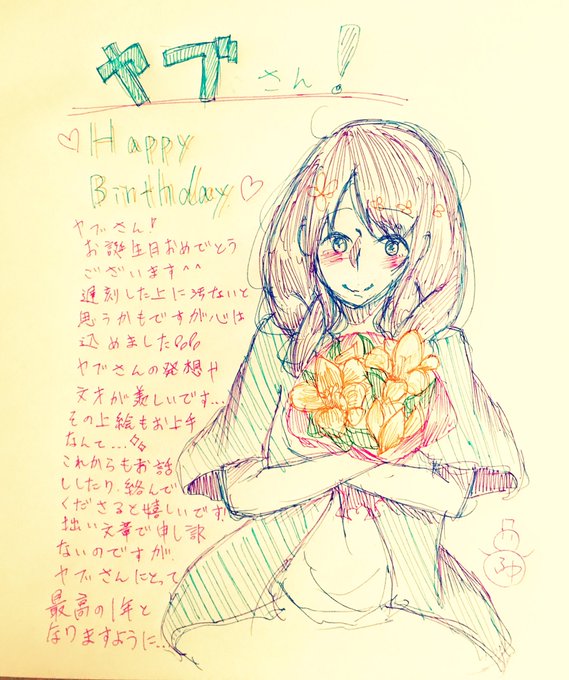 ヤブさん!
Happy
Birthday
ヤブさん!
お誕生日おめでとう
ございます^^
遅刻した上に汚ないと
思うかもですが心は
込めました
ヤブさんの発想や
文才が美しいです...
その上絵もお上手
なんて...
これからもお話
ししたり、絡んで
くださると嬉しいです!
拙い文章で申し訳
ないのですが、
ヤブさんにとって
最高の1年と
なりますように...
ふゆ